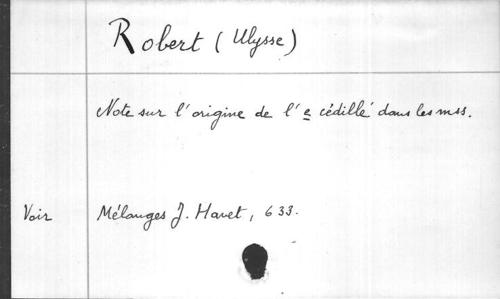 Robert (Ulysse)
Note sur l'origine de l'e cédillé dans les mss.
Voir Mélanges J. Havet, 633.